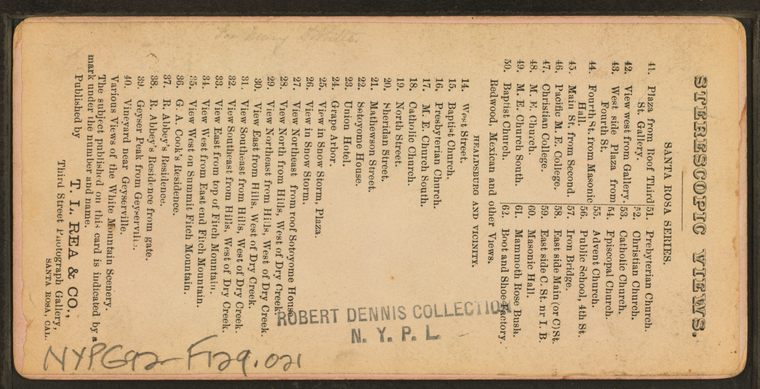 STERESCOPIC VIEWS.
SANTA ROSA SERIES.
41. Plaza from Roof Third St. Gallery.
42. View west from Gallery.
43. West side Plaza from Fourth St.
44. Fourth St. from Masonic Hall.
45. Main St. from Second.
46. Pacific M. E. College.
47. Christian College.
48. M. E. Church.
49. M. E. Church South.
50. Baptist Church.
51. Prebyterian Church.
52. Christian Church.
53. Catholic Church.
54. Episcopal Church.
55. Advent Church.
56. Public School, 4th St.
57. Iron Bridge.
58. East side Main (or C) St.
59. East side C. St. nr I. B.
60. Masonic Hall.
61. Mammoth Rose Bush.
62. Boot and Shoe Factory.
Redwood, Mexican and other Views.
HEALDSBURG AND VICINITY.
14. West Street.
15. Baptist Church.
16. Presbyterian Church.
17. M. E. Church South.
18. Catholic Church.
19. North Street.
20. Sheridan Street.
21. Matheuson Street.
22. Sotoyome House.
23. Union Hotel.
24. Grape Arbor.
25. View in Snow Storm, Plaza.
26. View in Snow Storm.
27. View Northeast from roof Sotoyome House.
28. View North from Hills, West of Dry Creek.
29. View Northeast from Hills, West of Dry Creek.
30. View East from Hills, West of Dry Creek.
31. View Southeast from Hills, West of Dry Creek.
32. View Southeast from Hills, West of Dry Creek.
33. View East from top of Fitch Mountain.
34. View West from East end Fitch Mountain.
35. View West on Summit Fitch Mountain.
36. G. A. Cook's Residence.
37. R. Abbey's Residence.
38. R. Abbey's Residence from gate.
39. Geyser Peak from Geyserville.
40. Vineyard near Geyserville.
Various Views of the White Mountain Scenery.
The subject published on this card is indicated by a
mark under the number and name.
Published by
T. L. REA & CO.,
Third Street Photograph Gallery,
SANTA ROSA, CAL.
ROBERT DENNIS COLLECTION
N. Y. P. L
NYPG92-F129.021